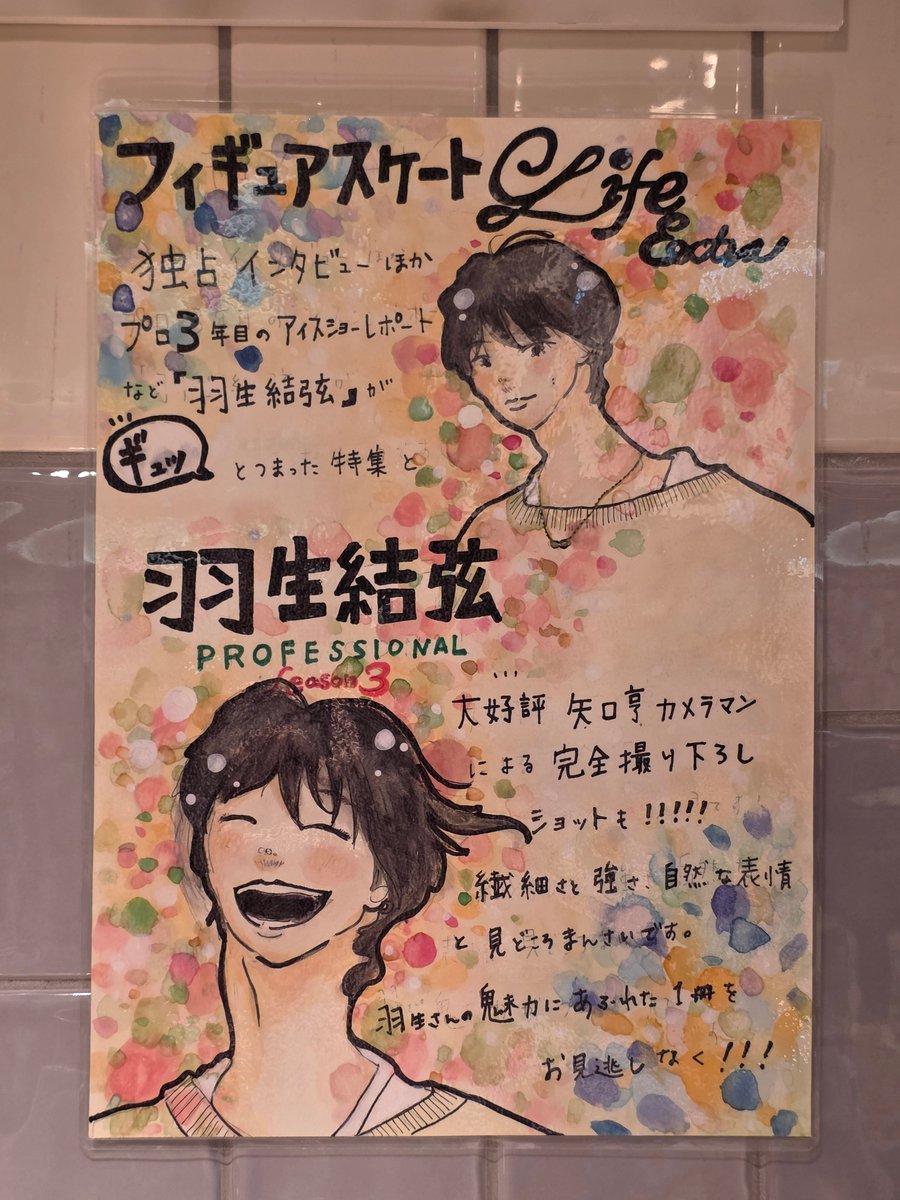 フィギュアスケート Life
Extra
独占インタビューほか
プロ3年目のアイスショーレポート
など「羽生結弦」が
ギュッ とつまった特集と
羽生結弦
PROFESSIONAL
Season3
大好評 矢口亨カメラマン
による 完全撮り下ろし
ショットも!!!!!
繊細さと強さ、自然な表情
と見どころまんさいです。
羽生さんの魅力にあふれた1冊を
お見逃しなく!!!